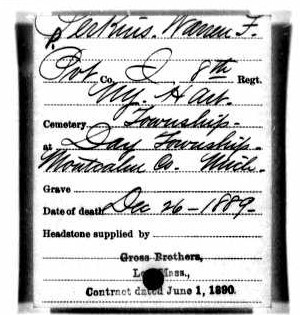 Perkins. Warren F.
Pvt Co. D. 8th Regt.
Ny. H Art.
Cemetery Township.
at Day Township.
Montcalm Co. Mich.
Grave
Date of death Dec 26-1889
Headstone supplied by
Gross Brothers,
Mass.,
Contract dated June 1, 1890.